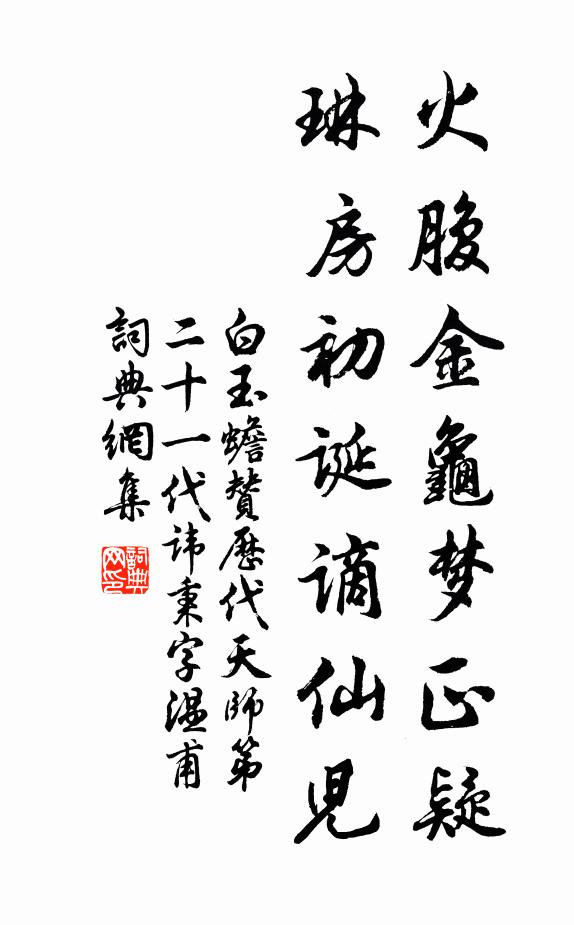 火腹金龜梦正疑
琳房初誕謫仙児
白玉蟾贊歷代天師第
二十一代諱秉字温甫
詞典網集
詞典网印